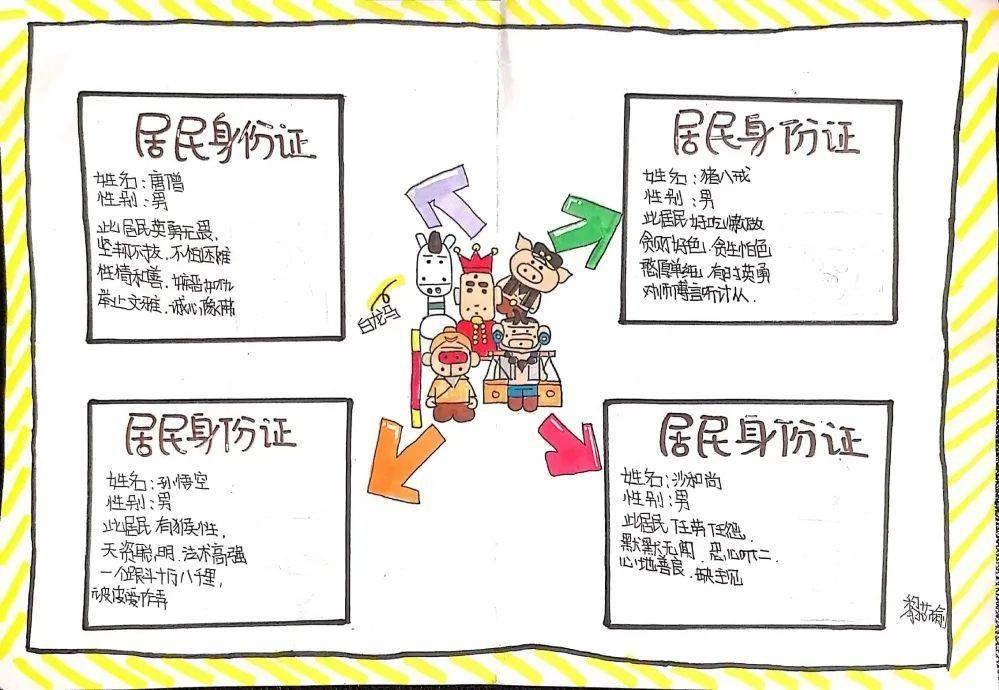 居民身份证
姓名:唐僧
性别:男
此居民英勇无畏,
坚韧不拔,不怕困难
性情和善,嫉恶如仇
举止文雅,诚心像佛
居民身份证
姓名:猪八戒
性别:男
此居民好吃懒做
贪财好色,贪生怕色
憨厚单纯,有时英勇
对师傅言听计从.
白龙马
居民身份证
姓名:孙悟空
性别:男
此居民有猴性,
天资聪明,法术高强
一个跟斗十万八千里,
顽皮爱作弄
居民身份证
姓名:沙和尚
性别:男
此居民任劳任怨,
默默无闻,忠心不二
心地善良,缺主见